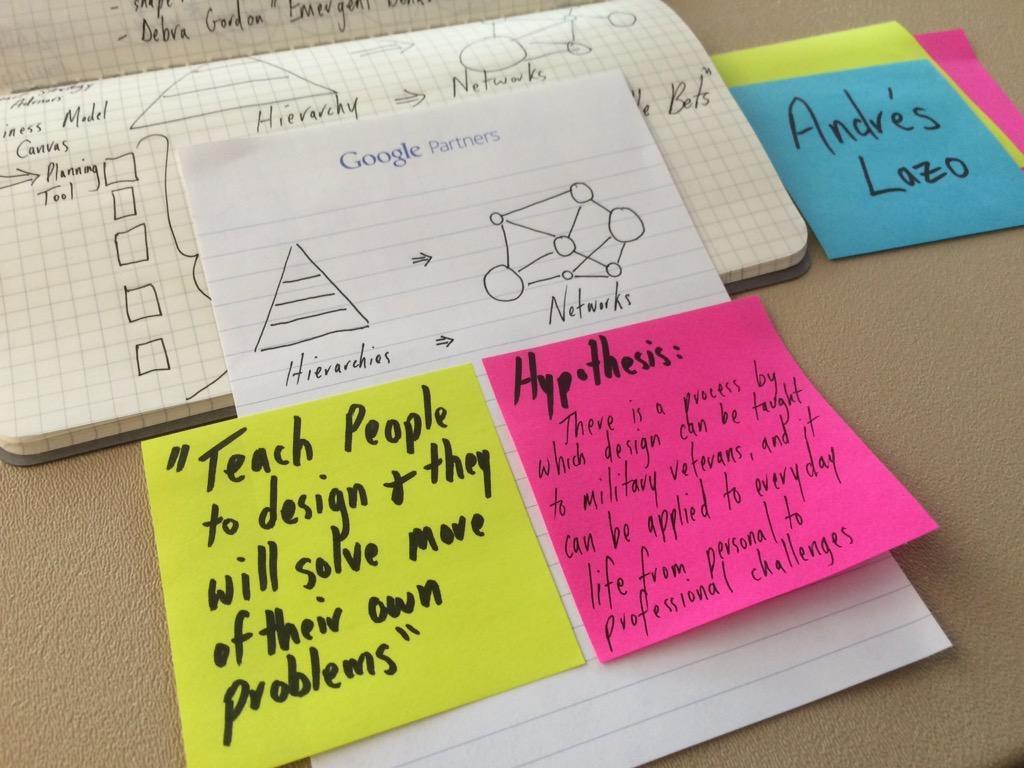 - shape
- Debra Gordon "Emergent
Hierarchy ⇒ Networks
Bets"
iness Model
Canvas
→ Planning
Tool
Andrés
Lazo
Google Partners
⇒
Hierarchies ⇒ Networks
"Teach People
to design + they
will solve more
of their own
problems"
Hypothesis:
There is a process by
which design can be taught
to military veterans, and it
can be applied to everyday
life from personal to
professional challenges